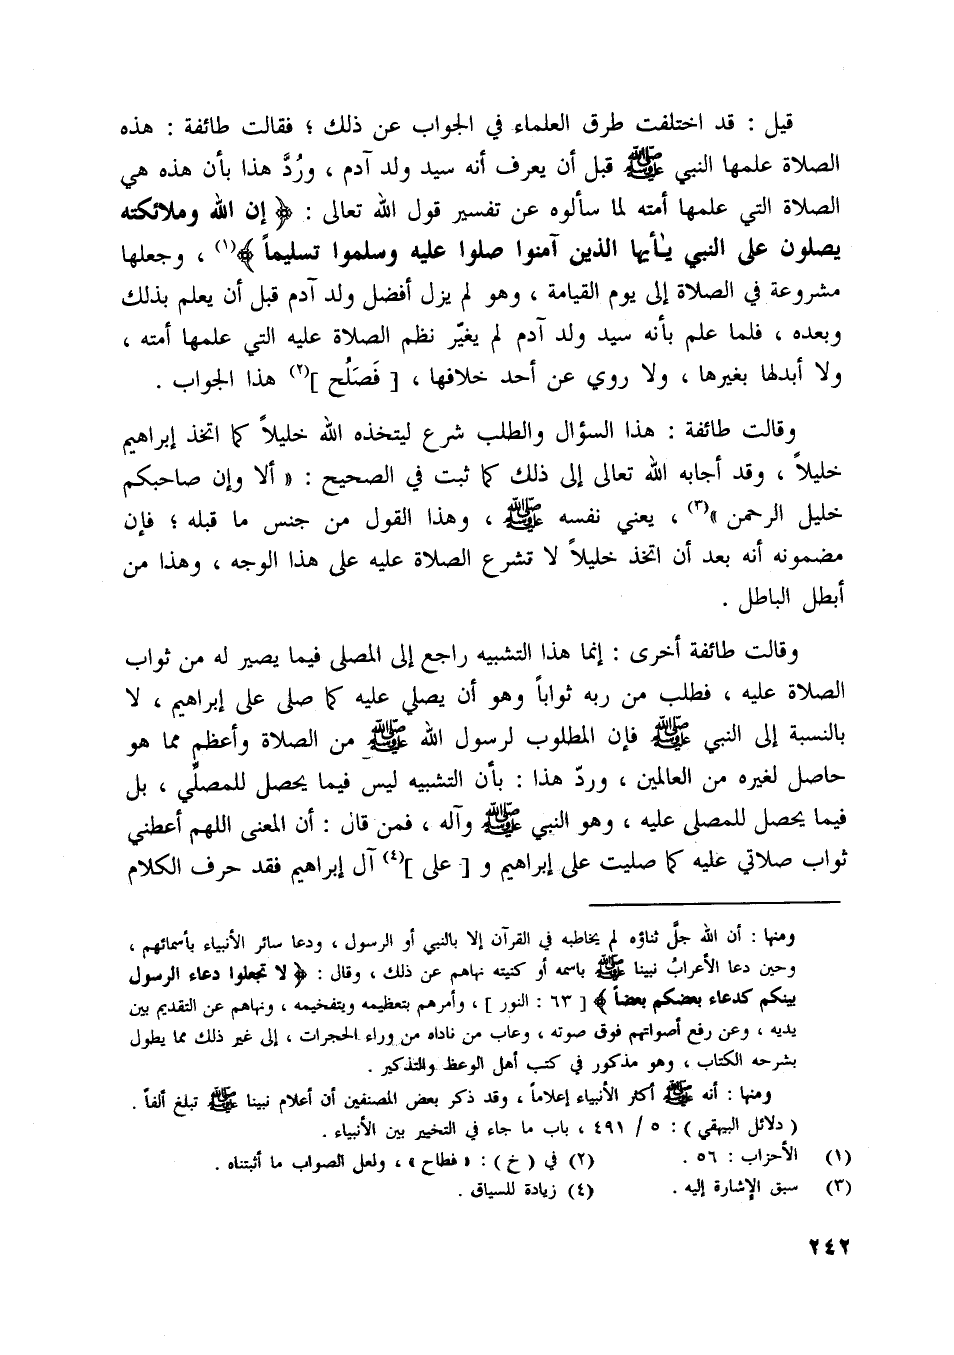 قيل : قد اختلفت طرق العلماء في الجواب عن ذلك ؛ فقالت طائفة : هذه
الصلاة علمها النبي ﷺ قبل أن يعرف أنه سيد ولد آدم ، ورُدَّ هذا بأن هذه هي
الصلاة التي علمها أمته لما سألوه عن تفسير قول الله تعالى : ﴿ إن الله وملائكته
يصلون على النبي يٰأيها الذين آمنوا صلوا عليه وسلموا تسليماً ﴾(١) ، وجعلها
مشروعة في الصلاة إلى يوم القيامة ، وهو لم يزل أفضل ولد آدم قبل أن يعلم بذلك
وبعده ، فلما علم بأنه سيد ولد آدم لم يغيّر نظم الصلاة عليه التي علمها أمته ،
ولا أبدلها بغيرها ، ولا روي عن أحد خلافها ، [ فَصَلُح ](٢) هذا الجواب .
وقالت طائفة : هذا السؤال والطلب شرع ليتخذه الله خليلاً كما اتخذ إبراهيم
خليلاً ، وقد أجابه الله تعالى إلى ذلك كما ثبت في الصحيح : « ألا وإن صاحبكم
خليل الرحمن »(٣) ، يعني نفسه ﷺ ، وهذا القول من جنس ما قبله ؛ فإن
مضمونه أنه بعد أن اتخذ خليلاً لا تشرع الصلاة عليه على هذا الوجه ، وهذا من
أبطل الباطل .
وقالت طائفة أخرى : إنما هذا التشبيه راجع إلى المصلي فيما يصير له من ثواب
الصلاة عليه ، فطلب من ربه ثواباً وهو أن يصلي عليه كما صلى على إبراهيم ، لا
بالنسبة إلى النبي ﷺ فإن المطلوب لرسول الله ﷺ من الصلاة وأعظم مما هو
حاصل لغيره من العالمين ، وردّ هذا : بأن التشبيه ليس فيما يحصل للمصلِّي ، بل
فيما يحصل للمصلى عليه ، وهو النبي ﷺ وآله ، فمن قال : أن المعنى اللهم أعطني
ثواب صلاتي عليه كما صليت على إبراهيم و [ على ](٤) آل إبراهيم فقد حرف الكلام
ومنها : أن الله جلَّ ثناؤه لم يخاطبه في القرآن إلا بالنبي أو الرسول ، ودعا سائر الأنبياء بأسمائهم ،
وحين دعا الأعرابُ نبينا ﷺ باسمه أو كنيته نهاهم عن ذلك ، وقال : ﴿ لا تجعلوا دعاء الرسول
بينكم كدعاء بعضكم بعضاً ﴾ [ ٦٣ : النور ] ، وأمرهم بتعظيمه وبتفخيمه ، ونهاهم عن التقديم بين
يديه ، وعن رفع أصواتهم فوق صوته ، وعاب من ناداه من وراء الحجرات ، إلى غير ذلك مما يطول
بشرحه الكتاب ، وهو مذكور في كتب أهل الوعظ والتذكير .
ومنها : أنه ﷺ أكثر الأنبياء إعلاماً ، وقد ذكر بعض المصنفين أن أعلام نبينا ﷺ تبلغ ألفاً .
( دلائل البيهقي ) : ٥ / ٤٩١ ، باب ما جاء في التخيير بين الأنبياء .
(١) الأحزاب : ٥٦ . (٢) في ( خ ) : « فطاح » ، ولعل الصواب ما أثبتناه .
(٣) سبق الإشارة إليه . (٤) زيادة للسياق .
٢٤٢